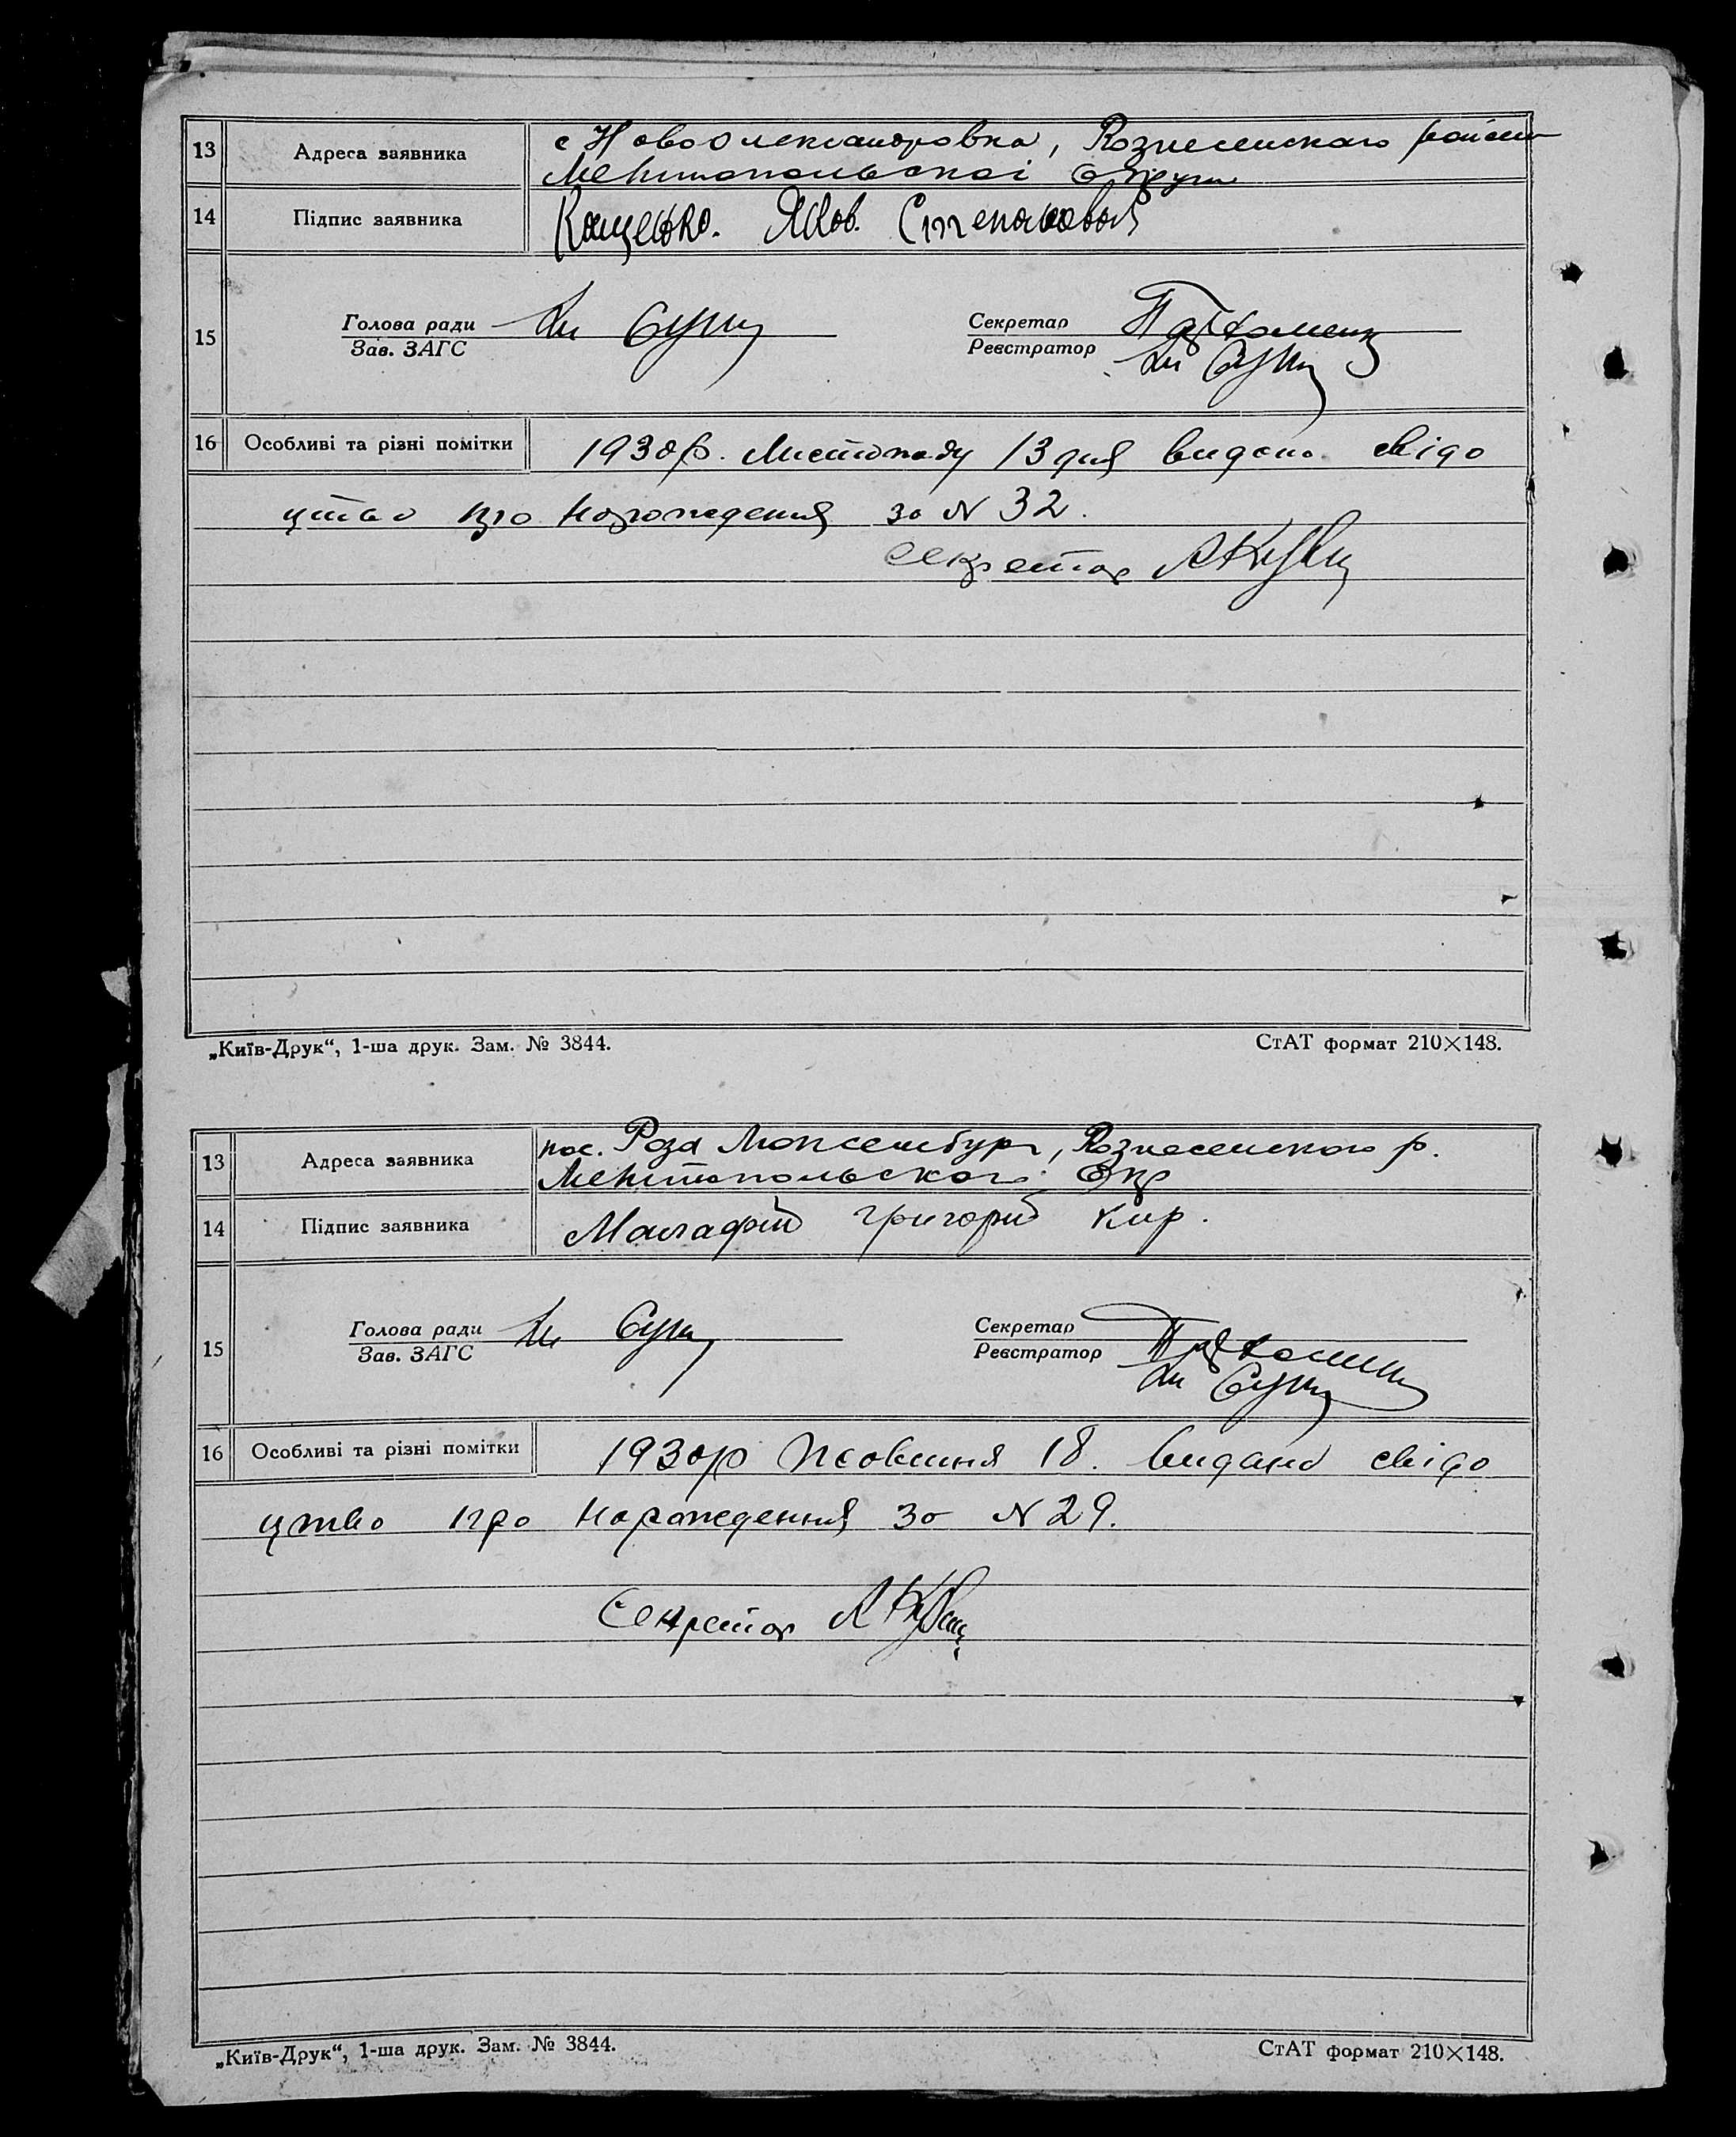 13 Адреса заявника с Новоолександровка, Рознесенскаго район
Мелитопольскоі Округи
14 Підпис заявника Кощенко. Яков. Степановой
15 Голова ради
Зав. ЗАГС
Секретар Пархоменко
Реєстратор
16 Особливі та різні помітки 1930р. Листопаду 13 дня видано свідо
цтво про народження за № 32.
Секретар
„Київ-Друк“, 1-ша друк. Зам. № 3844. СтАТ формат 210×148.
13 Адреса заявника пос. Роза Люксембург, Рознесенского р.
Мелитопольского Окр
14 Підпис заявника Малафій Григорий Кир.
15 Голова ради
Зав. ЗАГС
Секретар
Реєстратор
16 Особливі та різні помітки 1930р Жовтня 18. видано свідо
цтво про народження за № 29.
Секретар
„Київ-Друк“, 1-ша друк. Зам. № 3844. СтАТ формат 210×148.